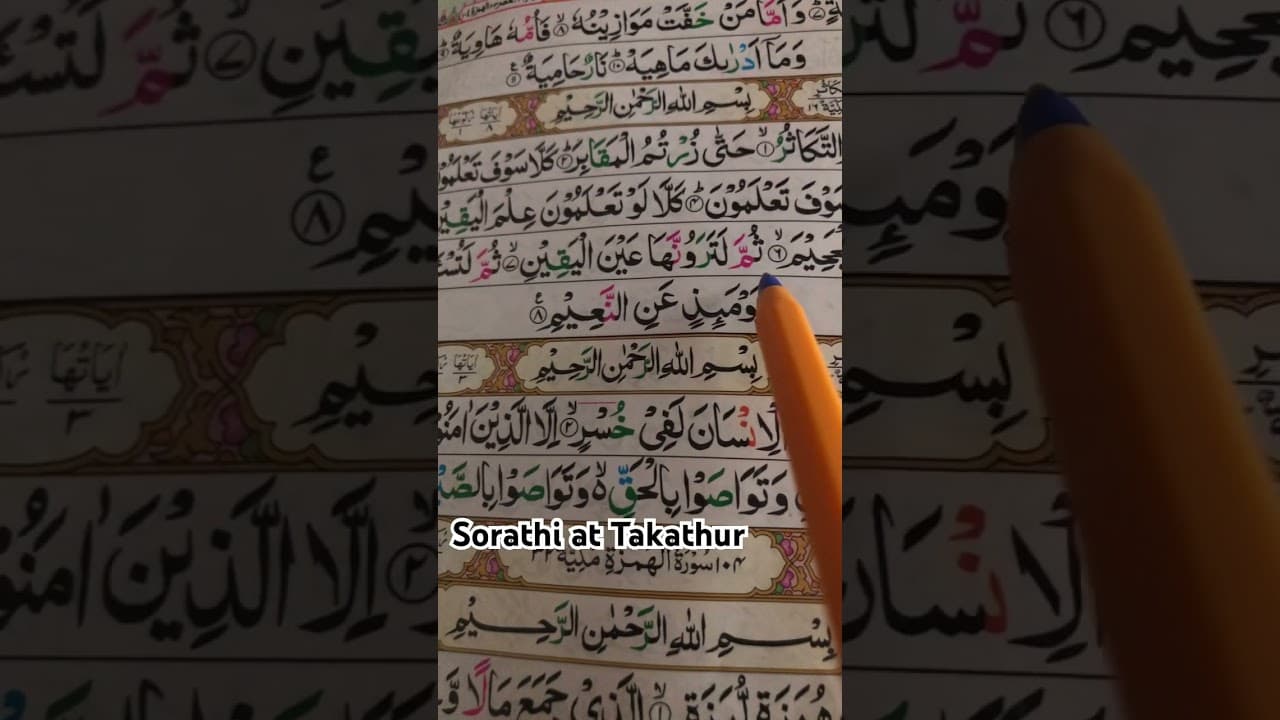 وَاَمَّا مَنْ خَفَّتْ مَوَازِيْنُهٗ ۙ۸ فَاُمُّهٗ هَاوِيَةٌ
وَمَاۤ اَدْرٰىكَ مَاهِيَهْ ؕ۱۰ نَارٌ حَامِيَةٌ
بِسْمِ اللّٰهِ الرَّحْمٰنِ الرَّحِيْمِ
التَّكَاثُرُ ۙ۱ حَتّٰى زُرْتُمُ الْمَقَابِرَ ؕ۲ كَلَّا سَوْفَ تَعْلَمُوْ
سَوْفَ تَعْلَمُوْنَ ؕ۴ كَلَّا لَوْ تَعْلَمُوْنَ عِلْمَ الْيَقِيْنِ
جَحِيْمَ ۙ۶ ثُمَّ لَتَرَوُنَّهَا عَيْنَ الْيَقِيْنِ ۙ۷ ثُمَّ لَتُسْـَٔ
وْمَىِٕذٍ عَنِ النَّعِيْمِ ۸
اٰيَاتُهَا ۳
بِسْمِ اللّٰهِ الرَّحْمٰنِ الرَّحِيْمِ
الْاِنْسَانَ لَفِيْ خُسْرٍ ۙ۲ اِلَّا الَّذِيْنَ اٰمَنُوْ
وَتَوَاصَوْا بِالْحَقِّ ۙ۬ وَتَوَاصَوْا بِالصَّبْ
Sorathi at Takathur
۱۰۴ سُوْرَةُ الْهُمَزَةِ مَكِّيَّةٌ ۳۲
بِسْمِ اللّٰهِ الرَّحْمٰنِ الرَّحِيْمِ
هُمَزَةٍ لُّمَزَةٍ ۙ۱ الَّذِيْ جَمَعَ مَالًا وَّ